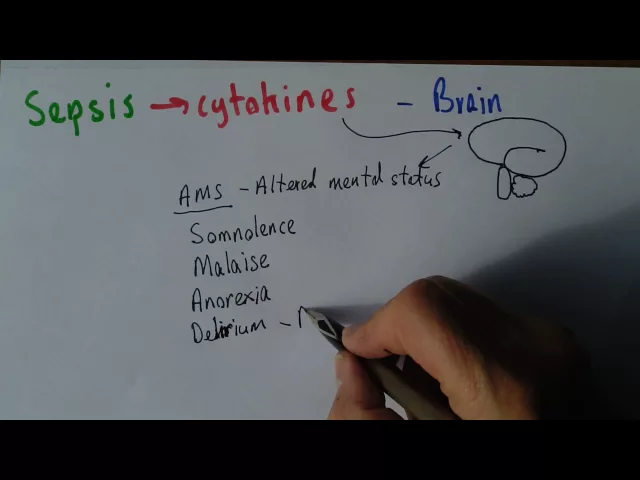 Sepsis → cytokines - Brain
AMS - Altered mental status
Somnolence
Malaise
Anorexia
Delirium -